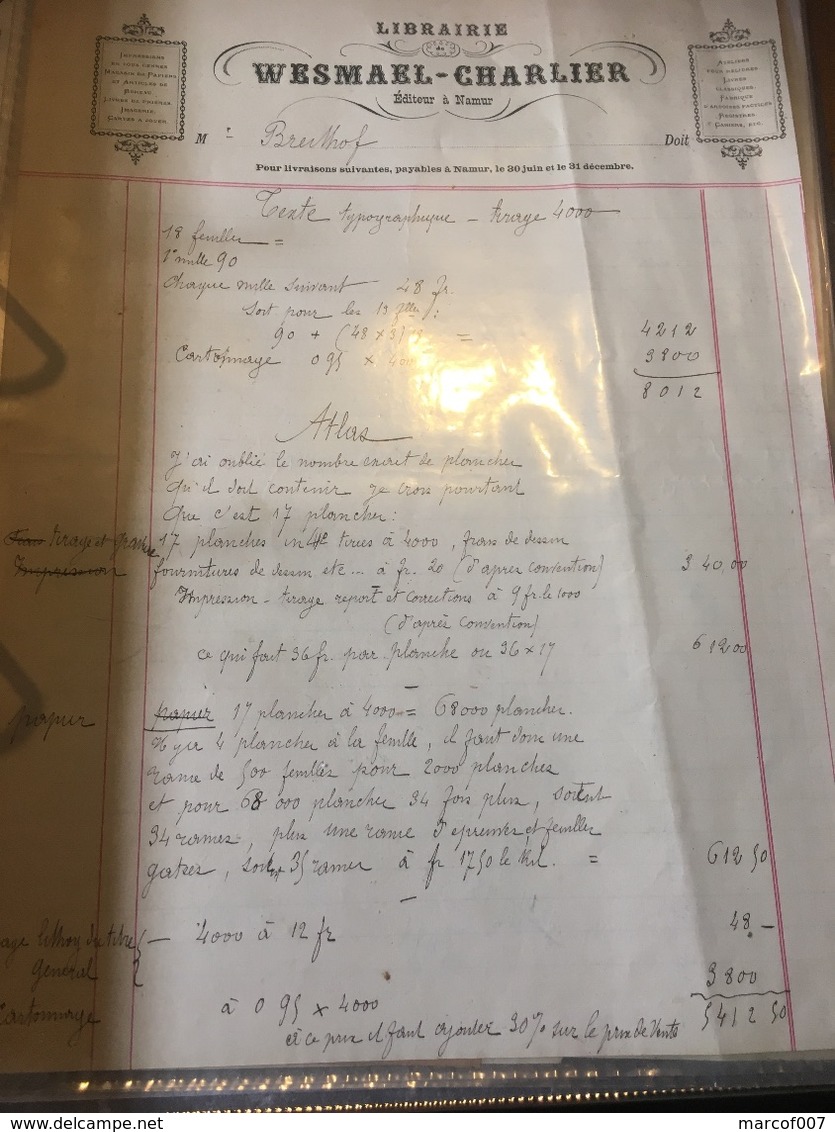 LIBRAIRIE
DE
WESMAEL-CHARLIER
Éditeur à Namur
IMPRESSIONS
EN TOUS GENRES
MAGASIN DE PAPIERS
ET ARTICLES DE
BUREAU
LIVRES DE PRIÈRES
IMAGERIE
CARTES A JOUER
ATELIERS
POUR RELIURES
LIVRES
CLASSIQUES
FABRIQUE
D'ARDOISES FACTICES
REGISTRES
CAHIERS, ETC.
Mr Breithof Doit
Pour livraisons suivantes, payables à Namur, le 30 juin et le 31 décembre.
Texte typographique — tirage 4000
18 feuilles =
1r mille 90
Chaque mille suivant 48 fr.
Soit pour les 13 flles :
90 + (48 x 3) 18 = 4212
Cartonnage 0 95 x 4000 3800
8012
Atlas
J'ai oublié le nombre exact de planches
qu'il doit contenir je crois pourtant
que c'est 17 planches :
Frais tirage et gravure 17 planches in 4° tirées à 4000, frais de dessin
Impression fournitures de dessin etc... à fr. 20 (d'après convention) 340,00
Impression - tirage report et corrections à 9 fr. le 1000
(d'après convention)
ce qui fait 36 fr. par planche ou 36 x 17 612 00
papier papier 17 planches à 4000 = 68000 planches.
Il y a 4 planches à la feuille, il faut donc une
rame de 500 feuilles pour 2000 planches
et pour 68 000 planches 34 fois plus, soient
34 rames, plus une rame d'épreuves et feuilles
gatées, soient 35 rames à fr 17 50 le kil. = 612 50
age lithog du titre — 4000 à 12 fr 48 —
général
Cartonnage à 0 95 x 4000 3800
à ce prix il faut ajouter 30% sur le prix de vente 5412 50
marcof007